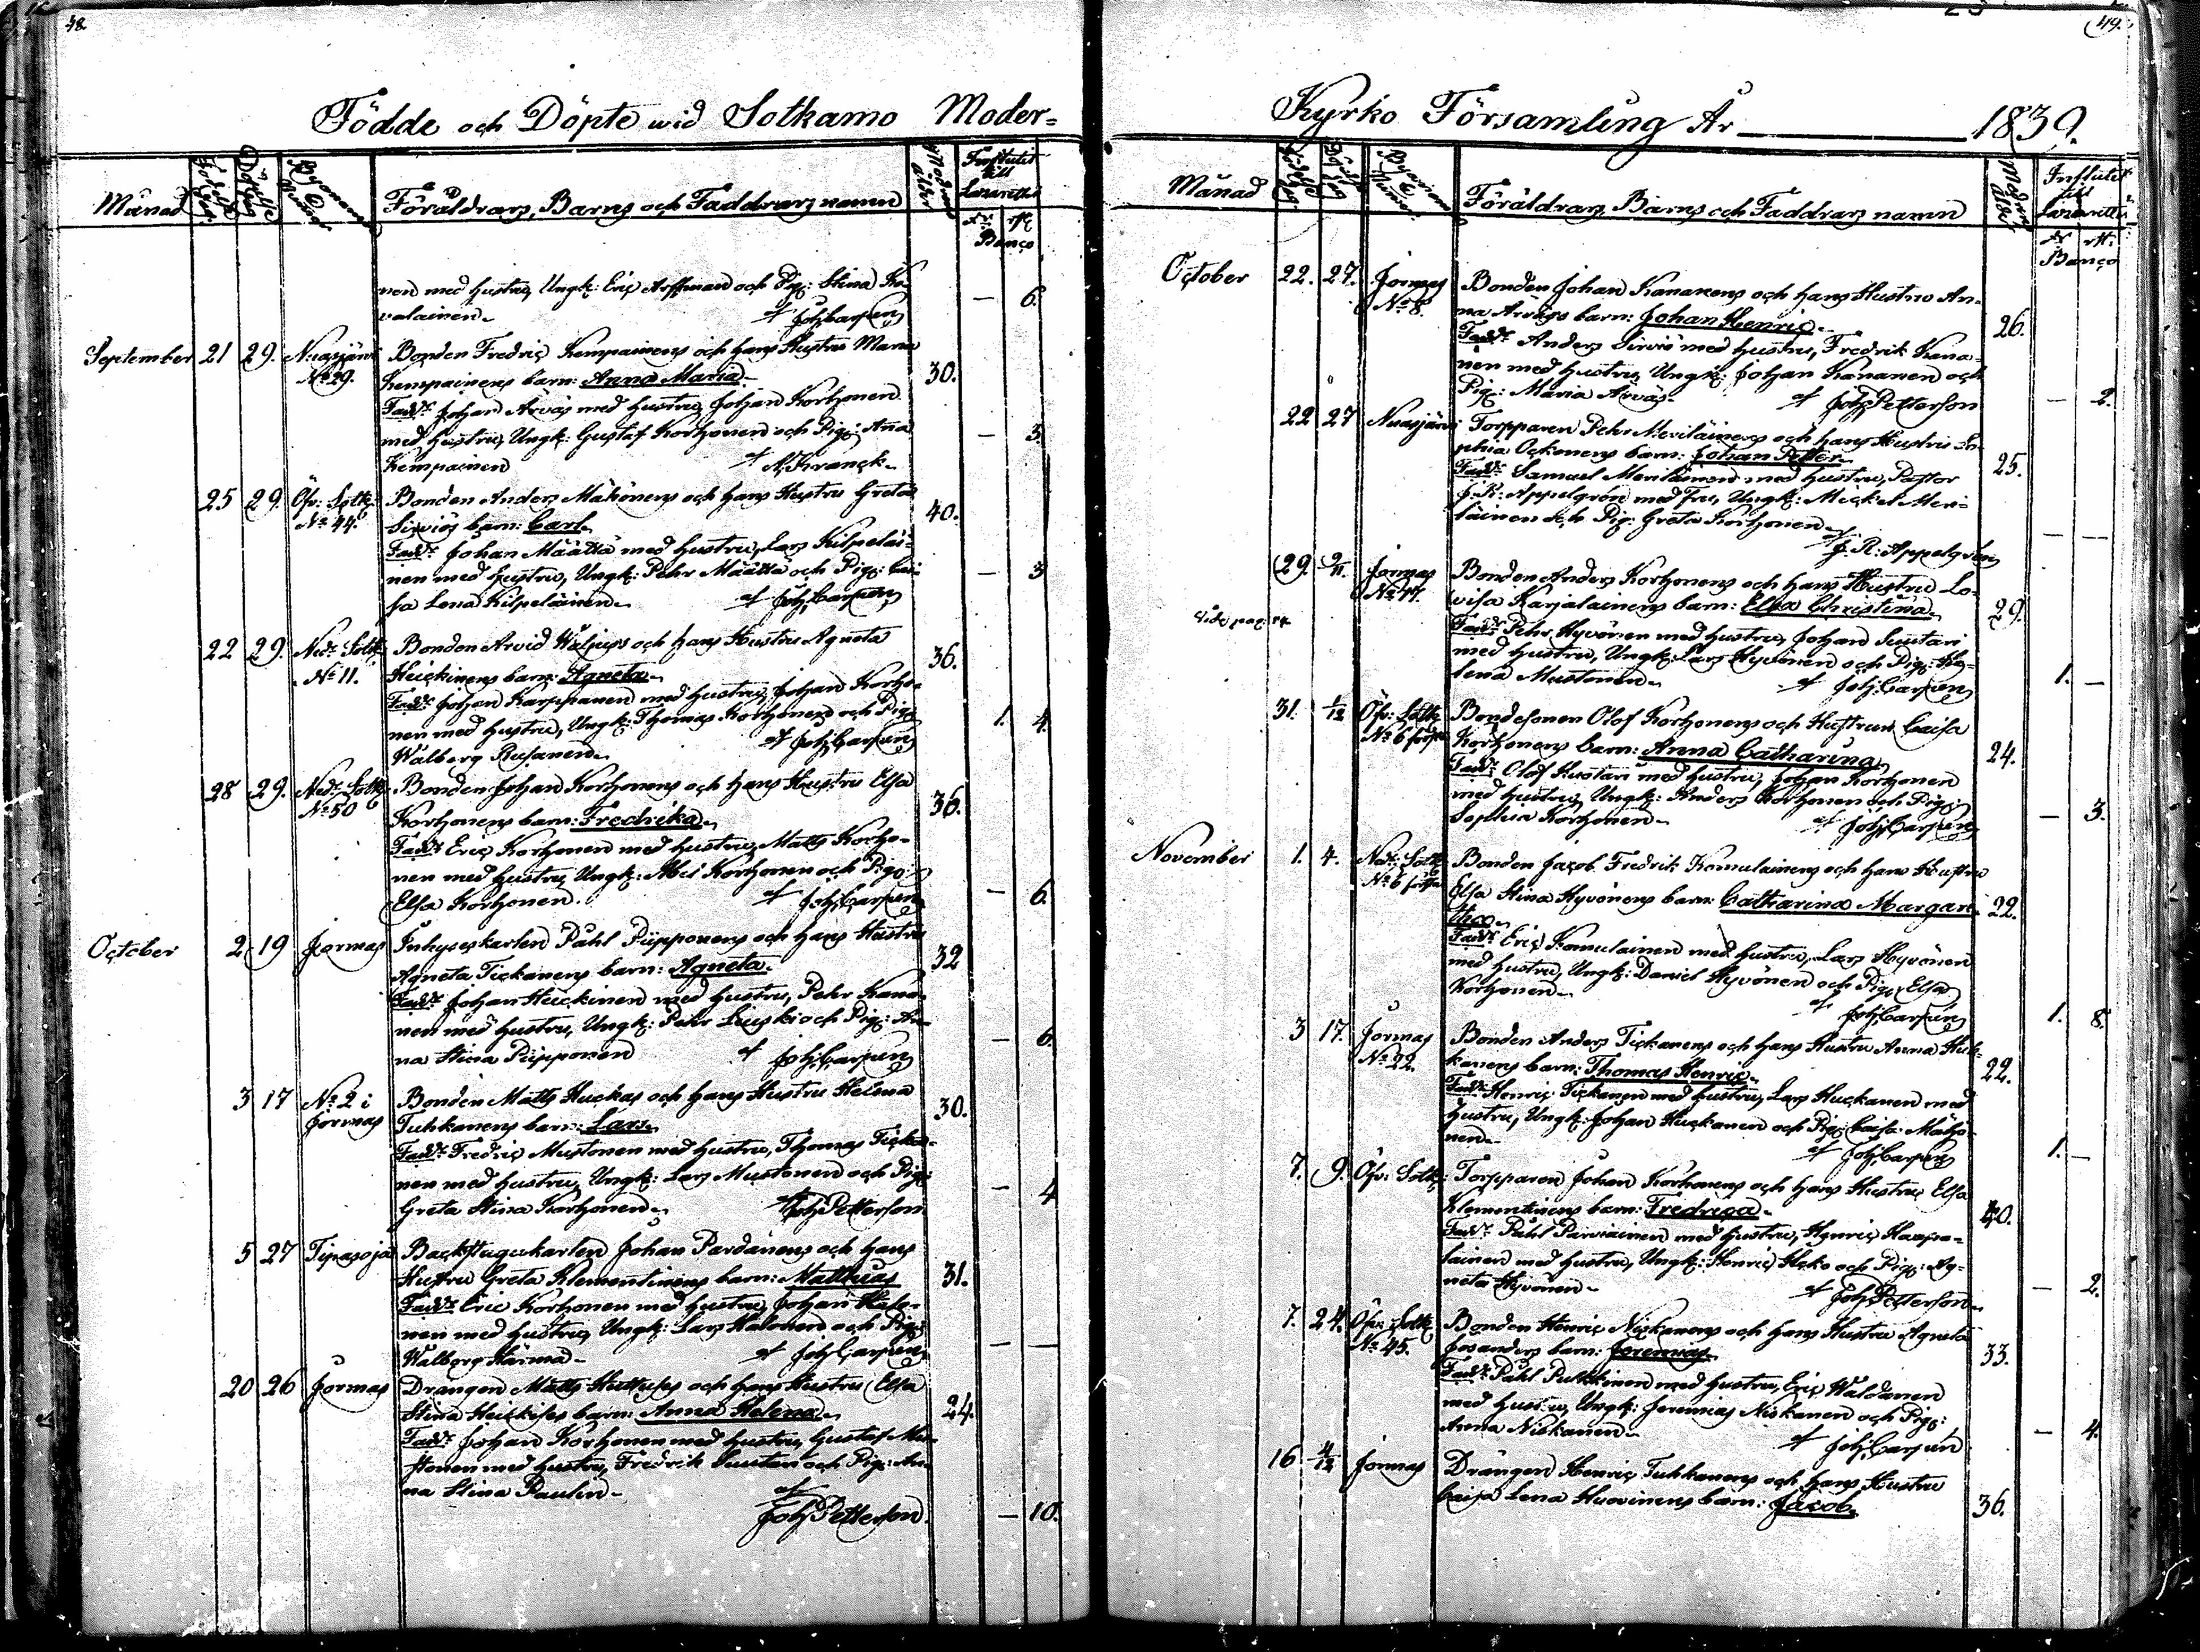 48.
Födde och Döpte wid Sotkamo Moder=
Månad
Födelse Dag
Döpelse Dag
Byarnas Namn
Föräldrars, Barns och Faddrars namn
Modrens ålder
Influtit till Lazarettet
Banco
nen med hustru, Ungk: Eric Arffman och Pig: Stina Ko-
valainen. af Joh Carpén
— 6.
September 21 29. Nuasjärvi Bonden Fredric Kempainens och hans Hustru Maria
No 29. Kempainens barn: Anna Maria. 30.
Fadd: Johan Arvås med hustru, Johan Korhonen
med hustru, Ungk: Gustaf Korhonen och Pig: Ana — 3.
Kempainen af N. Kranck.
25 29. Öfv: Sotk: Bonden Anders Mähönens och hans Hustru Greta
No 44. Sirviös barn: Carl. 40.
Fadd: Johan Määttä med hustru, Lars Kilpeläi-
nen med hustru, Ungk: Pehr Määttä och Pig: Cai- — 3
sa Lena Kilpeläinen. af Joh Carpén
22 29. Ned: Sotk: Bonden Arvid Waljus's och hans Hustru Agneta
No 11. Heickinens barn: Agneta. 36.
Fadd: Johan Karppanen med hustru, Johan Korho-
nen med hustru, Ungk: Thomas Korhonen och Pig: 1. 4.
Walborg Rusanen. af Joh Carpén
28 29. Ned: Sotk: Bonden Johan Korhonens och hans Hustru Elsa
No 50 Korhonens barn: Fredrika. 36.
Fadd: Eric Korhonen med hustru, Matts Korho-
nen med hustru, Ungk: Abel Korhonen och Pig: — 6.
Elsa Korhonen. af Joh Carpén
October 2 19 Jormas Inhyseskarlen Påhl Piipponens och hans Hustru
Agneta Tickanens barn: Agneta. 32
Fadd: Johan Heickinen med hustru, Pehr Kana-
nen med hustru, Ungk: Pehr Leuski och Pig: An-
na Stina Piipponen af Joh Carpén — 6.
3 17 No 2 i Bonden Matts Huckas och hans Hustru Helena
Jormas Tuhkanens barn: Lars. 30.
Fadd: Fredric Mustonen med hustru, Thomas Ticka-
nen med hustru, Ungk: Lars Mustonen och Pig: — 4
Greta Stina Korhonen. af Joh Petterson
5 27 Tipasoja Backstugukarlen Johan Pardanens och hans
Hustru Greta Klementinens barn: Matthias 31.
Fadd: Eric Korhonen med hustru, Johan Halo-
nen med hustru, Ungk: Lars Halonen och Pig:
Walborg Härmä. af Joh Carpén — —
20 26 Jormas Drängen Matts Huttuses och hans Hustru Elsa
Stina Heickises barn: Anna Helena. 24.
Fadd: Johan Korhonen med hustru, Gustaf Mu-
stonen med hustru, Fredrik Suutari och Pig: An-
na Stina Paulin. af
Joh Petterson. — 10.
49.
Kyrko Församling År 1839.
Månad
Födelse Dag
Döpelse Dag
Byarnas Namn
Föräldrars, Barns och Faddrars namn
Modrens ålder
Influtit till Lazarettet
Banco
October 22. 27. Jormas Bonden Johan Kananens och hans Hustru An-
No 8. na Arvås's barn: Johan Henric. 26.
Fadd: Anders Sirviö med hustru, Fredrik Kana-
nen med hustru, Ungk: Johan Kananen och
Pig: Maria Arvås. af Joh Petterson — 2.
22 27 Nuasjärvi Torpparen Pehr Meriläinens och hans Hustru So-
phia Ockonens barn: Johan Petter. 25.
Fadd: Samuel Meriläinen med hustru, Pastor
J. R: Appelgrén med Fru, Ungk: Mickel Meri-
läinen och Pig: Greta Korhonen.
af J. R: Appelgrén — —
29. 2/11. Jormas Bonden Anders Korhonens och hans Hustru Lo-
No 47. visa Karjalainens barn: Elsa Christina. 29.
Vide pag:
Fadd: Pehr Hyvönen med hustru, Johan Suutari
med hustru, Ungk: Lars Hyvönen och Pig: He-
lena Mustonen. af Joh Carpén 1. —
31. 1/12 Öfv: Sotk: Bondesonen Olof Korhonens och Hustruns Caisa
No 6 Korhonens barn: Anna Catharina. 24.
Fadd: Olof Kustari med hustru, Johan Korhonen
med hustru, Ungk: Anders Korhonen och Pig:
Sophia Korhonen. af Joh Carpén — 3.
November 1. 4. Ned: Sotk: Bonden Jacob Fredrik Komulainens och hans Hustru
No 6 Elsa Stina Hyvönens barn: Catharina Margare- 22.
tha.
Fadd: Eric Komulainen med hustru, Lars Hyvönen
med hustru, Ungk: Daniel Hyvönen och Pig: Elsa
Korhonen. af Joh Carpén 1. 8.
3 17. Jormas Bonden Anders Tickanens och hans Hustru Anna Huc-
No 22. kanens barn: Thomas Henric. 22.
Fadd: Henric Tickanen med hustru, Lars Huckanen med
hustru, Ungk: Johan Huckanen och Pig: Caisa Mähö-
nen. af Joh Carpén 1. —
7. 9. Öfv: Sotk: Torpparen Johan Korhonens och hans Hustru Elsa
Klementinens barn: Fredrica. 40.
Fadd: Påhl Parviainen med hustru, Henric Haapa-
lainen med hustru, Ungk: Henric Heko och Pig: Ag-
neta Hyvönen. af Joh Petterson. — 2.
7. 24. Öfv: Sotk: Bonden Henric Niskanens och hans Hustru Agneta
No 45. Josanders barn: Jeremias. 33.
Fadd: Påhl Pulkkinen med hustru, Eric Waldanen
med hustru, Ungk: Jeremias Niskanen och Pig:
Anna Niskanen. af Joh Carpén — 4.
16 4/12 Jormas Drängen Henric Tuhkanens och hans Hustru
Caisa Lena Hyvönens barn: Jacob. 36.